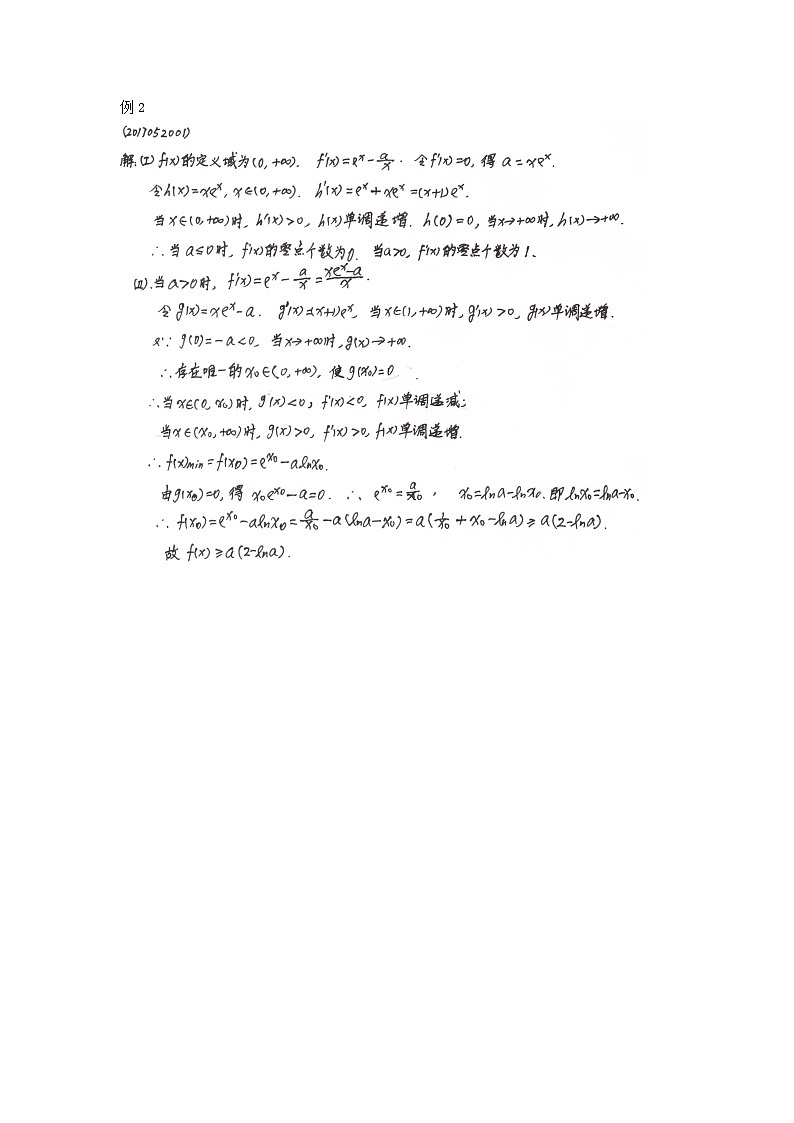 例2
(2017052001)
解:(I) f(x)的定义域为(0,+∞). f'(x)=eˣ-a/x. 令f'(x)=0,得 a=xeˣ.
令h(x)=xeˣ, x∈(0,+∞). h'(x)=eˣ+xeˣ=(x+1)eˣ.
当x∈(0,+∞)时, h'(x)>0, h(x)单调递增. h(0)=0, 当x→+∞时, h(x)→+∞.
∴当a≤0时, f'(x)的零点个数为0. 当a>0, f'(x)的零点个数为1.
(II).当a>0时, f'(x)=eˣ-a/x=(xeˣ-a)/x.
令g(x)=xeˣ-a. g'(x)=(x+1)eˣ, 当x∈(1,+∞)时, g'(x)>0, g(x)单调递增.
又∵ g(0)=-a<0, 当x→+∞时, g(x)→+∞.
∴存在唯一的x₀∈(0,+∞), 使g(x₀)=0.
∴当x∈(0,x₀)时, g(x)<0, f'(x)<0, f(x)单调递减;
当x∈(x₀,+∞)时, g(x)>0, f'(x)>0, f(x)单调递增.
∴f(x)min=f(x₀)=e^x₀-alnx₀.
由g(x₀)=0,得 x₀e^x₀-a=0. ∴ e^x₀=a/x₀, x₀=lna-lnx₀. 即lnx₀=lna-x₀.
∴ f(x₀)=e^x₀-alnx₀=a/x₀-a(lna-x₀)=a(1/x₀+x₀-lna)≥a(2-lna).
故 f(x)≥a(2-lna).